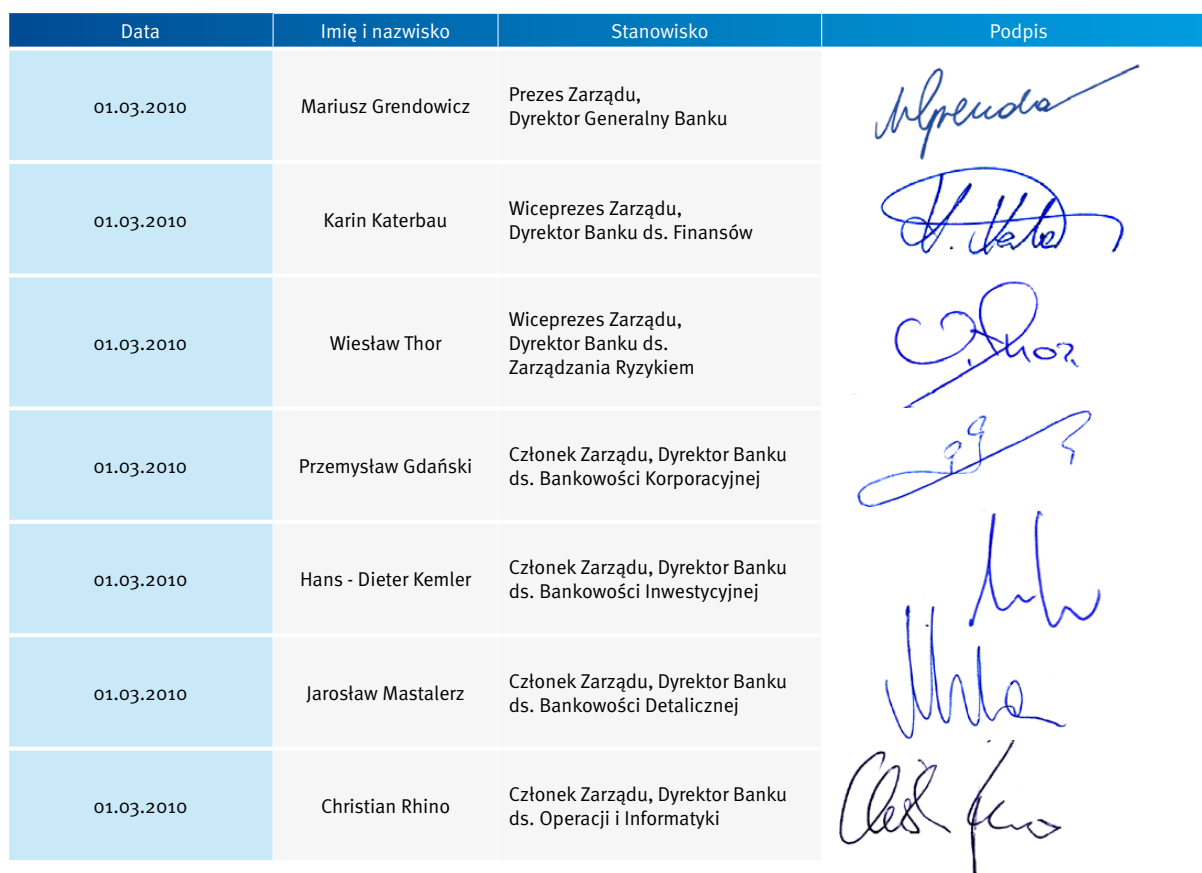 Data Imię i nazwisko Stanowisko Podpis
01.03.2010 Mariusz Grendowicz Prezes Zarządu,
Dyrektor Generalny Banku
01.03.2010 Karin Katerbau Wiceprezes Zarządu,
Dyrektor Banku ds. Finansów
01.03.2010 Wiesław Thor Wiceprezes Zarządu,
Dyrektor Banku ds.
Zarządzania Ryzykiem
01.03.2010 Przemysław Gdański Członek Zarządu, Dyrektor Banku
ds. Bankowości Korporacyjnej
01.03.2010 Hans - Dieter Kemler Członek Zarządu, Dyrektor Banku
ds. Bankowości Inwestycyjnej
01.03.2010 Jarosław Mastalerz Członek Zarządu, Dyrektor Banku
ds. Bankowości Detalicznej
01.03.2010 Christian Rhino Członek Zarządu, Dyrektor Banku
ds. Operacji i Informatyki